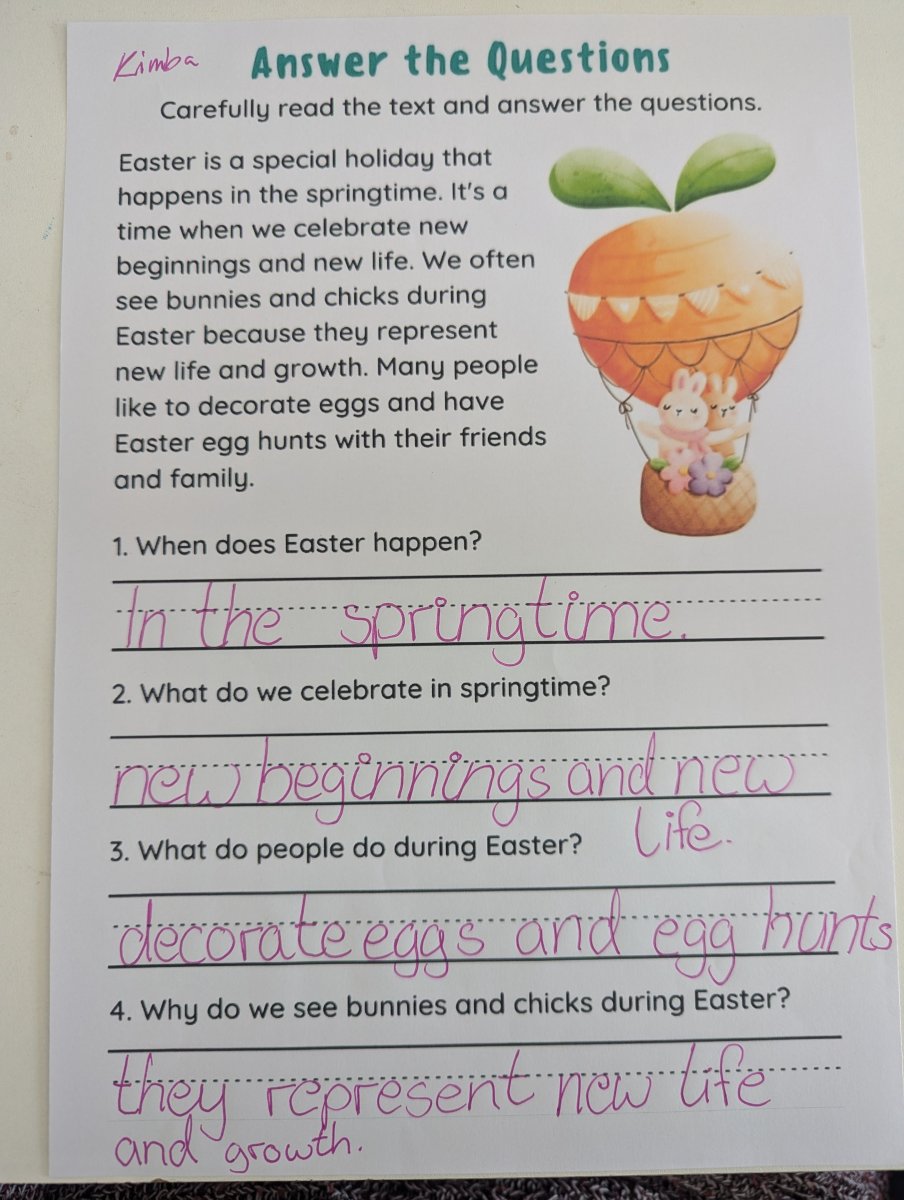 Kimba
Answer the Questions
Carefully read the text and answer the questions.
Easter is a special holiday that
happens in the springtime. It's a
time when we celebrate new
beginnings and new life. We often
see bunnies and chicks during
Easter because they represent
new life and growth. Many people
like to decorate eggs and have
Easter egg hunts with their friends
and family.
1. When does Easter happen?
In the springtime.
2. What do we celebrate in springtime?
new beginnings and new
life.
3. What do people do during Easter?
decorate eggs and egg hunts
4. Why do we see bunnies and chicks during Easter?
they represent new life
and growth.